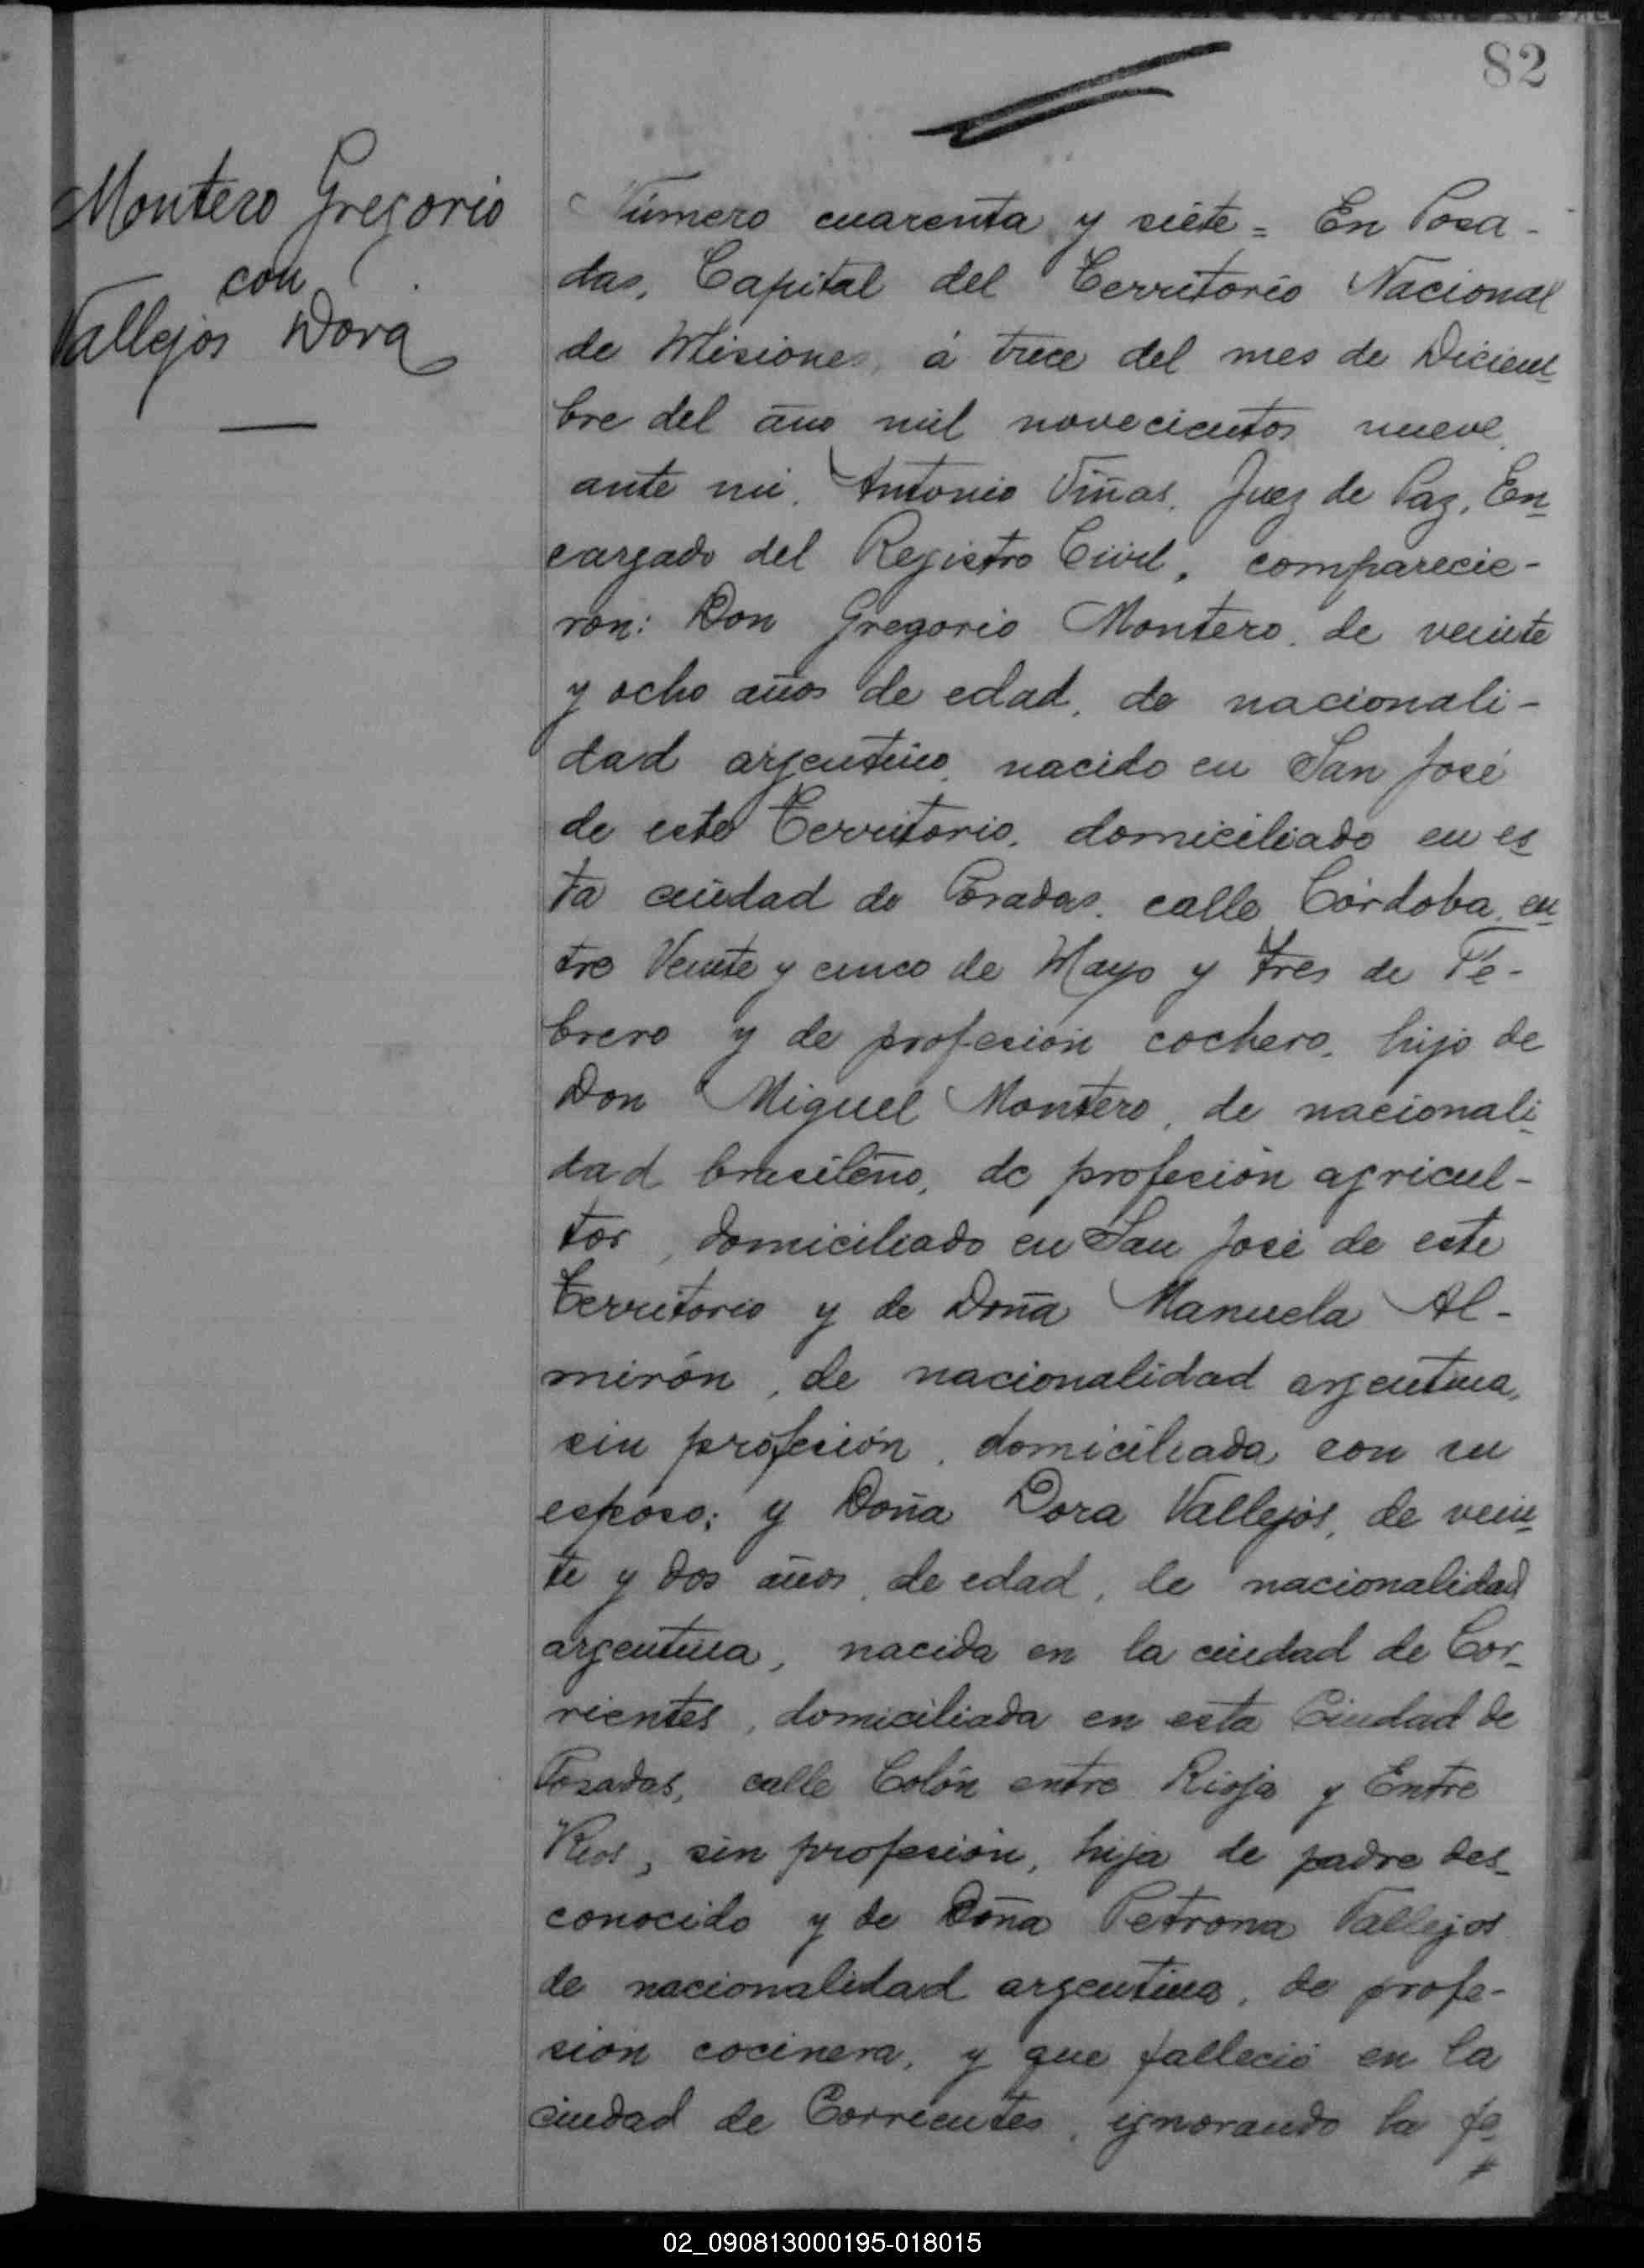 82
Montero Gregorio
con
Vallejos Dora
Número cuarenta y siete = En Posa-
das, Capital del Territorio Nacional
de Misiones, á trece del mes de Diciem-
bre del año mil novecientos nueve,
ante mi, Antonio Viñas, Juez de Paz, En-
cargado del Registro Civil, comparecie-
ron: Don Gregorio Montero, de veinte
y ocho años de edad, de nacionali-
dad argentino, nacido en San José
de este Territorio, domiciliado en es-
ta ciudad de Posadas, calle Córdoba, en-
tre Veinte y cinco de Mayo y Tres de Fe-
brero y de profesión cochero, hijo de
Don Miguel Montero, de nacionali-
dad brasileño, de profesión agricul-
tor, domiciliado en San José de este
Territorio y de Doña Manuela Al-
mirón, de nacionalidad argentina,
sin profesión, domiciliada con su
esposo; y Doña Dora Vallejos, de vein-
te y dos años, de edad, de nacionalidad
argentina, nacida en la ciudad de Cor-
rientes, domiciliada en esta Ciudad de
Posadas, calle Colón entre Rioja y Entre
Rios, sin profesión, hija de padre des-
conocido y de Doña Petrona Vallejos
de nacionalidad argentina, de profe-
sión cocinera, y que falleció en la
ciudad de Corrientes, ignorando la fe-
02_090813000195-018015